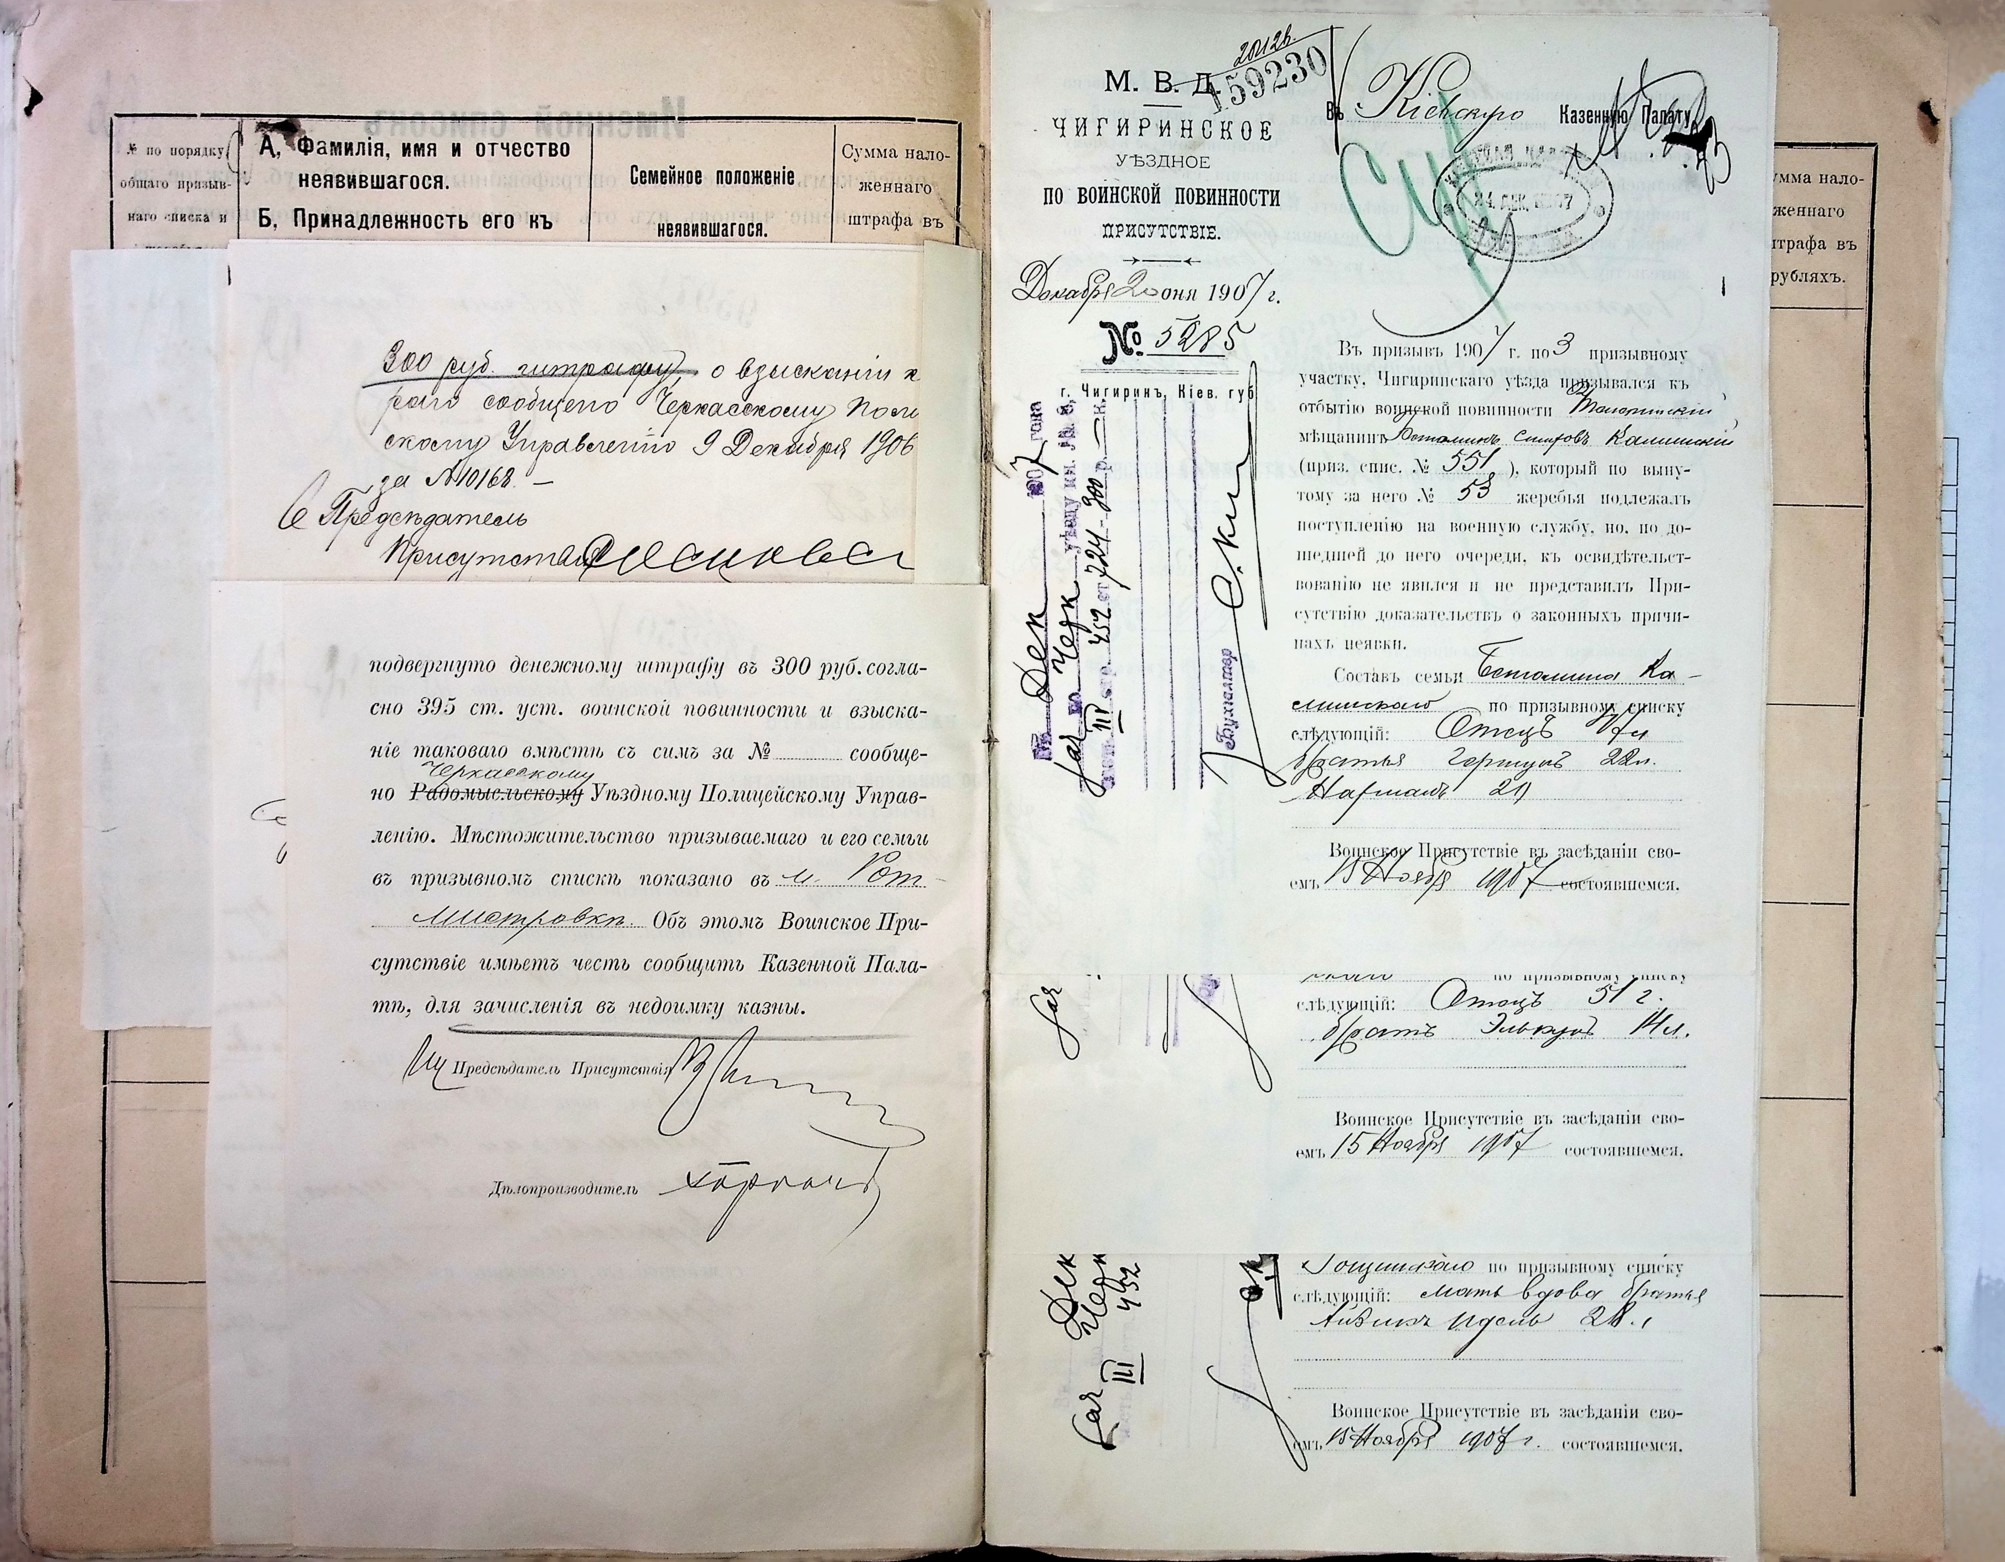 № по порядку
общаго призыв-
наго списка и
А, Фамилія, имя и отчество
неявившагося.
Б, Принадлежность его къ
Семейное положеніе
неявившагося.
Сумма нало-
женнаго
штрафа въ
300 руб. штрафу, о взысканіи к
раго сообщено Черкасскому Поли
скому Управленію 9 Декабря 1906
за №10168. —
Предсѣдатель
Присутствія
подвергнуто денежному штрафу въ 300 руб. согла-
сно 395 ст. уст. воинской повинности и взыска-
ніе таковаго вмѣстѣ съ симъ за № сообще-
Черкасскому
но Радомысльскому Уѣздному Полицейскому Управ-
ленію. Мѣстожительство призываемаго и его семьи
въ призывномъ спискѣ показано въ м. Рот-
мистровкѣ. Объ этомъ Воинское При-
сутствіе имѣетъ честь сообщить Казенной Пала-
тѣ, для зачисленія въ недоимку казны.
Предсѣдатель Присутствія
Дѣлопроизводитель
159230
М. В. Д.
ЧИГИРИНСКОЕ
УѢЗДНОЕ
ПО ВОИНСКОЙ ПОВИННОСТИ
ПРИСУТСТВІЕ.
Декабря 20 дня 1907 г.
№ 5285
г. Чигиринъ, Кіев. губ.
Въ Кіевскую Казенную Палату
24 ДЕК. 1907
1907 года
Дек
Черк уѣзду кн.
III стр. 432 ст 724 - 300 р. — к.
Бухгалтер
Въ призывъ 1907 г. по 3 призывному
участку, Чигиринскаго уѣзда призывался къ
отбытію воинской повинности
мѣщанинъ Калинскій
(приз. спис. № 551 ), который по выну-
тому за него № 53 жеребья подлежалъ
поступленію на военную службу, но, по до-
шедшей до него очереди, къ освидѣтельст-
вованію не явился и не представилъ При-
сутствію доказательствъ о законныхъ причи-
нахъ неявки.
Составъ семьи Ка-
линскаго по призывному списку
слѣдующій: Отецъ
братья 22 л.
Воинское Присутствіе въ засѣданіи сво-
емъ 15 Ноября 1907 состоявшемся.
по призывному списку
слѣдующій: Отецъ 51 г.
братъ 14 л.
Воинское Присутствіе въ засѣданіи сво-
емъ 15 Ноября 1907 состоявшемся.
Дек
Черк
III 432
по призывному списку
слѣдующій: мать вдова братья
Воинское Присутствіе въ засѣданіи сво-
емъ 15 Ноября 1907 г. состоявшемся.
умма нало-
женнаго
штрафа въ
рубляхъ.